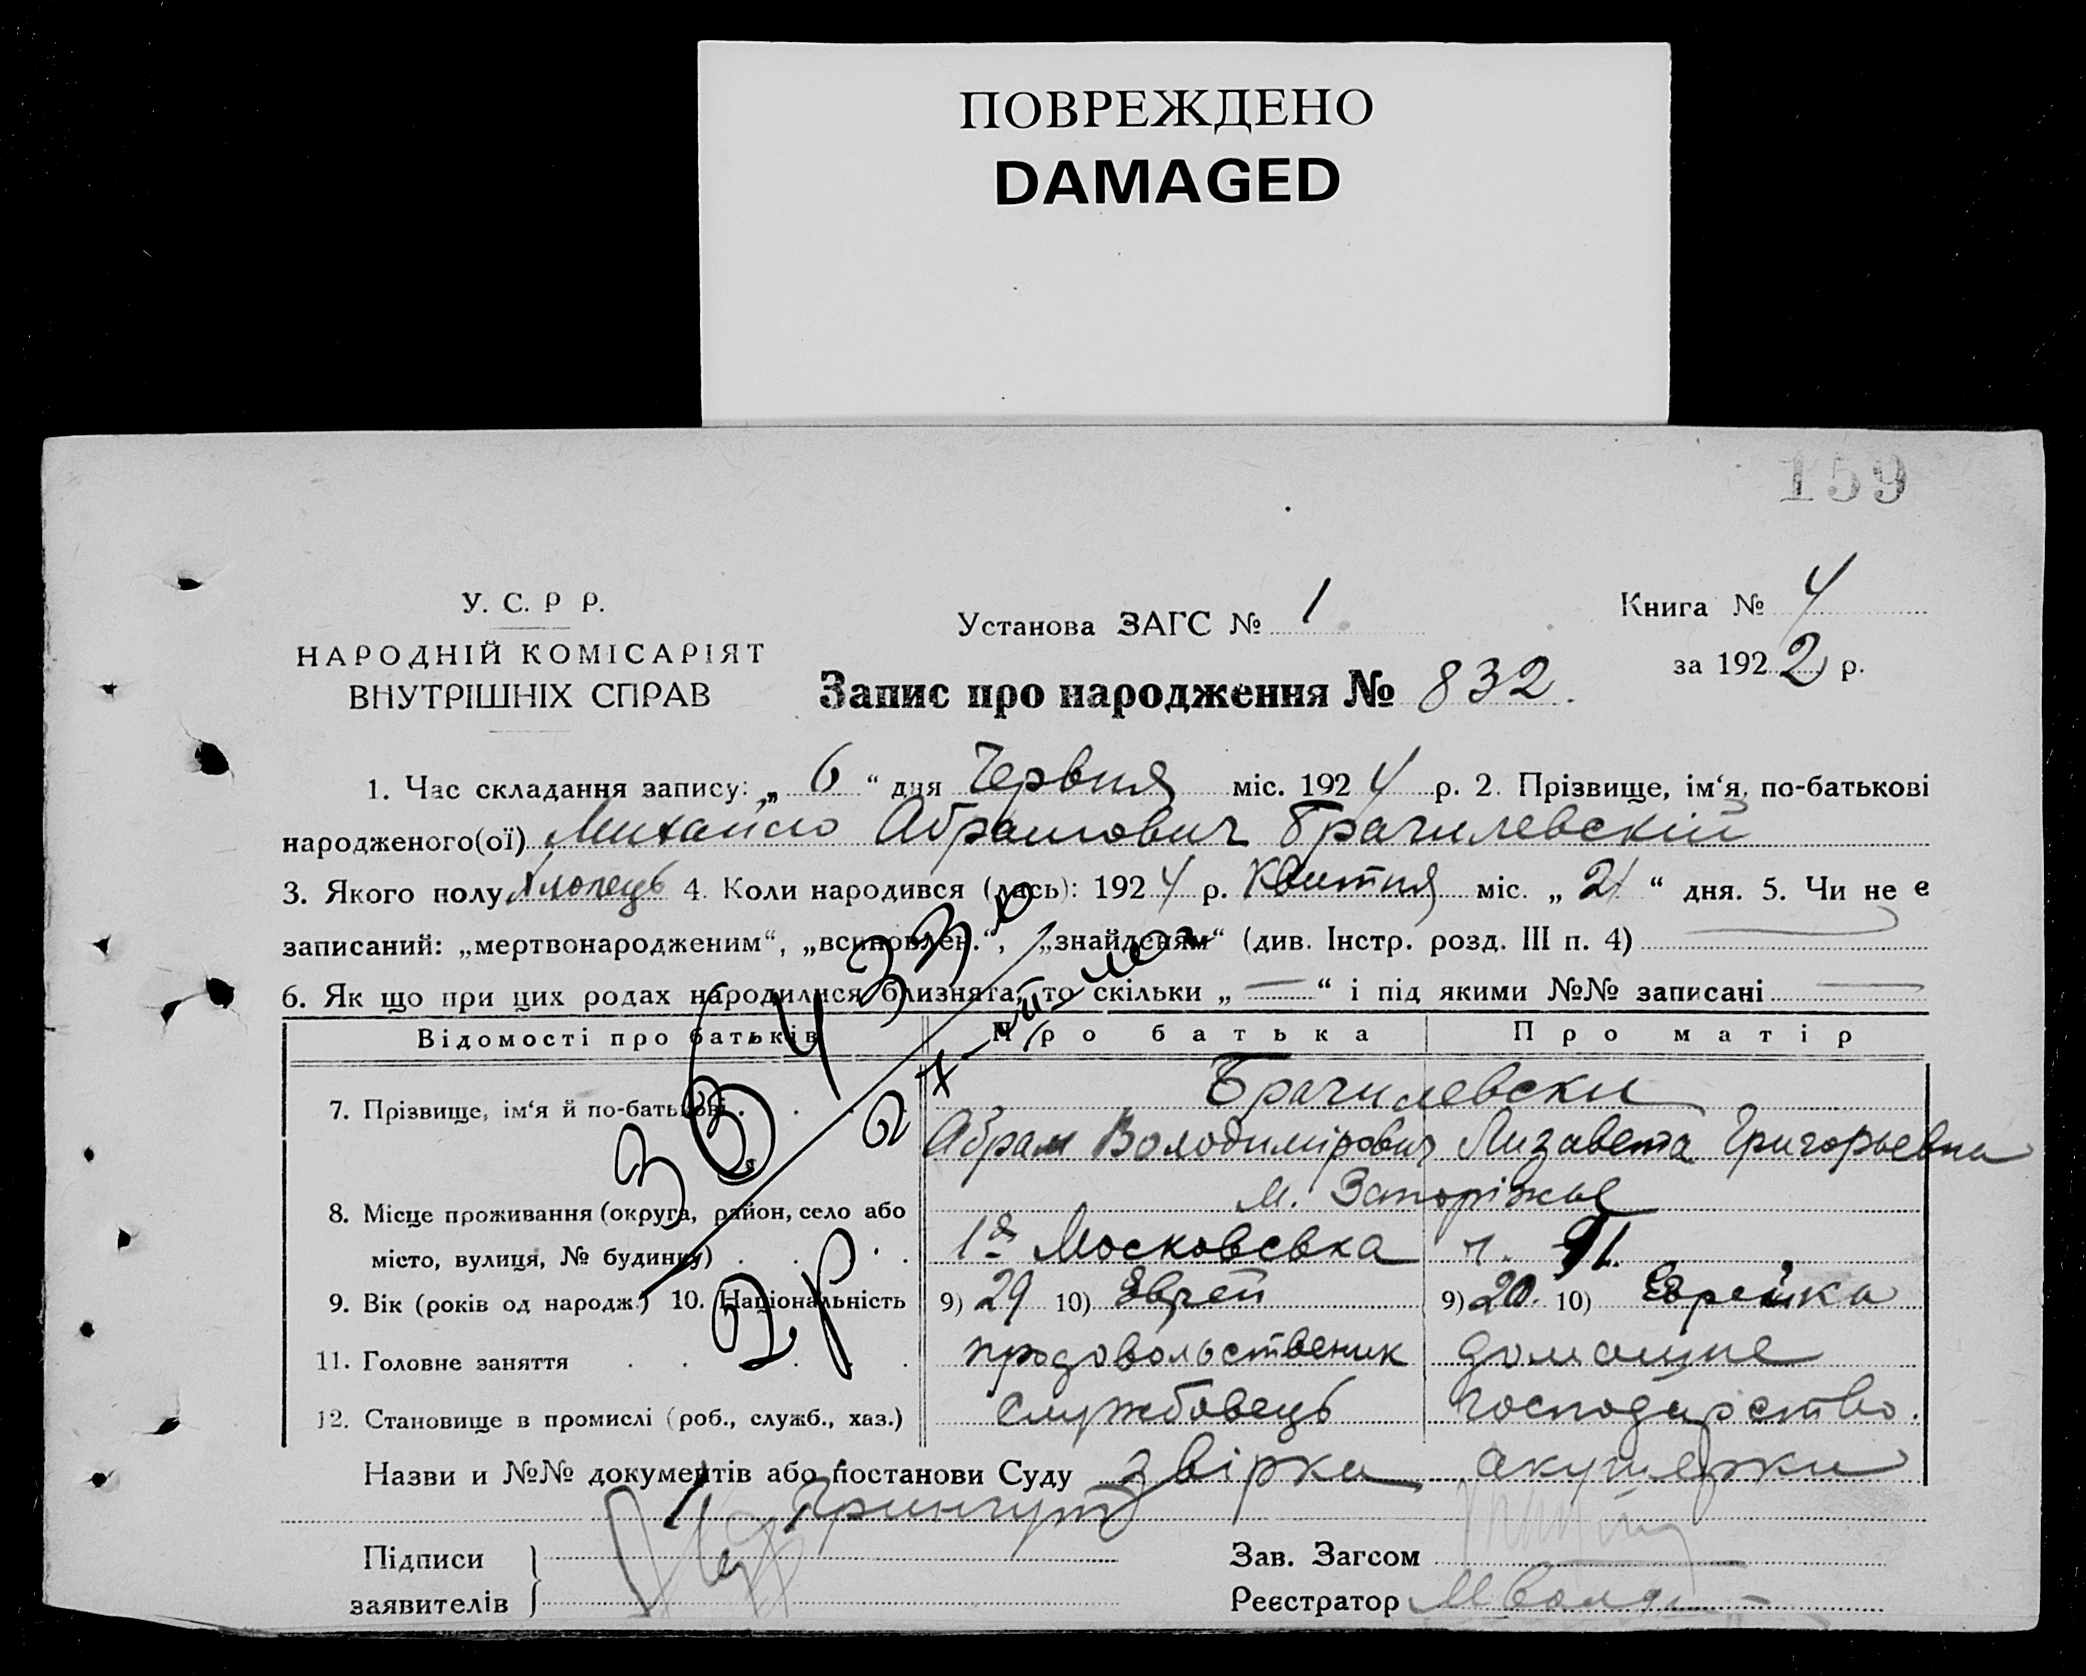 ПОВРЕЖДЕНО
DAMAGED
159
У. С. Р Р.
НАРОДНІЙ КОМІСАРІЯТ
ВНУТРІШНІХ СПРАВ
Установа ЗАГС № 1
Книга № 4
за 1922 р.
Запис про народження № 832.
1. Час складання запису: „ 6 “ дня Червня міс. 1924 р. 2. Прізвище, ім‘я, по-батькові
народженого(ої) Михайло Абрамович Брачилевскій
3. Якого полу Хлопець 4. Коли народився (лась): 1924 р. Квитня міс. „ 21 “ дня. 5. Чи не є
записаний: „мертвонародженим“, „всиновлен.“, „знайденям“ (див. Інстр. розд. III п. 4)
6. Як що при цих родах народилися близнята, то скільки „ — “ і під якими №№ записані —
Відомості про батьків Про батька Про матір
7. Прізвище, ім‘я й по-батькові Брачилевски
Абрам Володимірович Лизавета Григорьевна
8. Місце проживання (округа, район, село або м. Запоріжье
місто, вулиця, № будинку) 1а Московсвка ч. 91.
9. Вік (років од народж.) 10. Національність 9) 29 10) Еврей 9) 20. 10) Еврейка
11. Головне заняття продовольственик домашне
12. Становище в промислі (роб., служб., хаз.) службовець господарство.
Назви и №№ документів або постанови Суду звірка акушерки
Підписи
заявителів
Зав. Загсом
Реєстратор